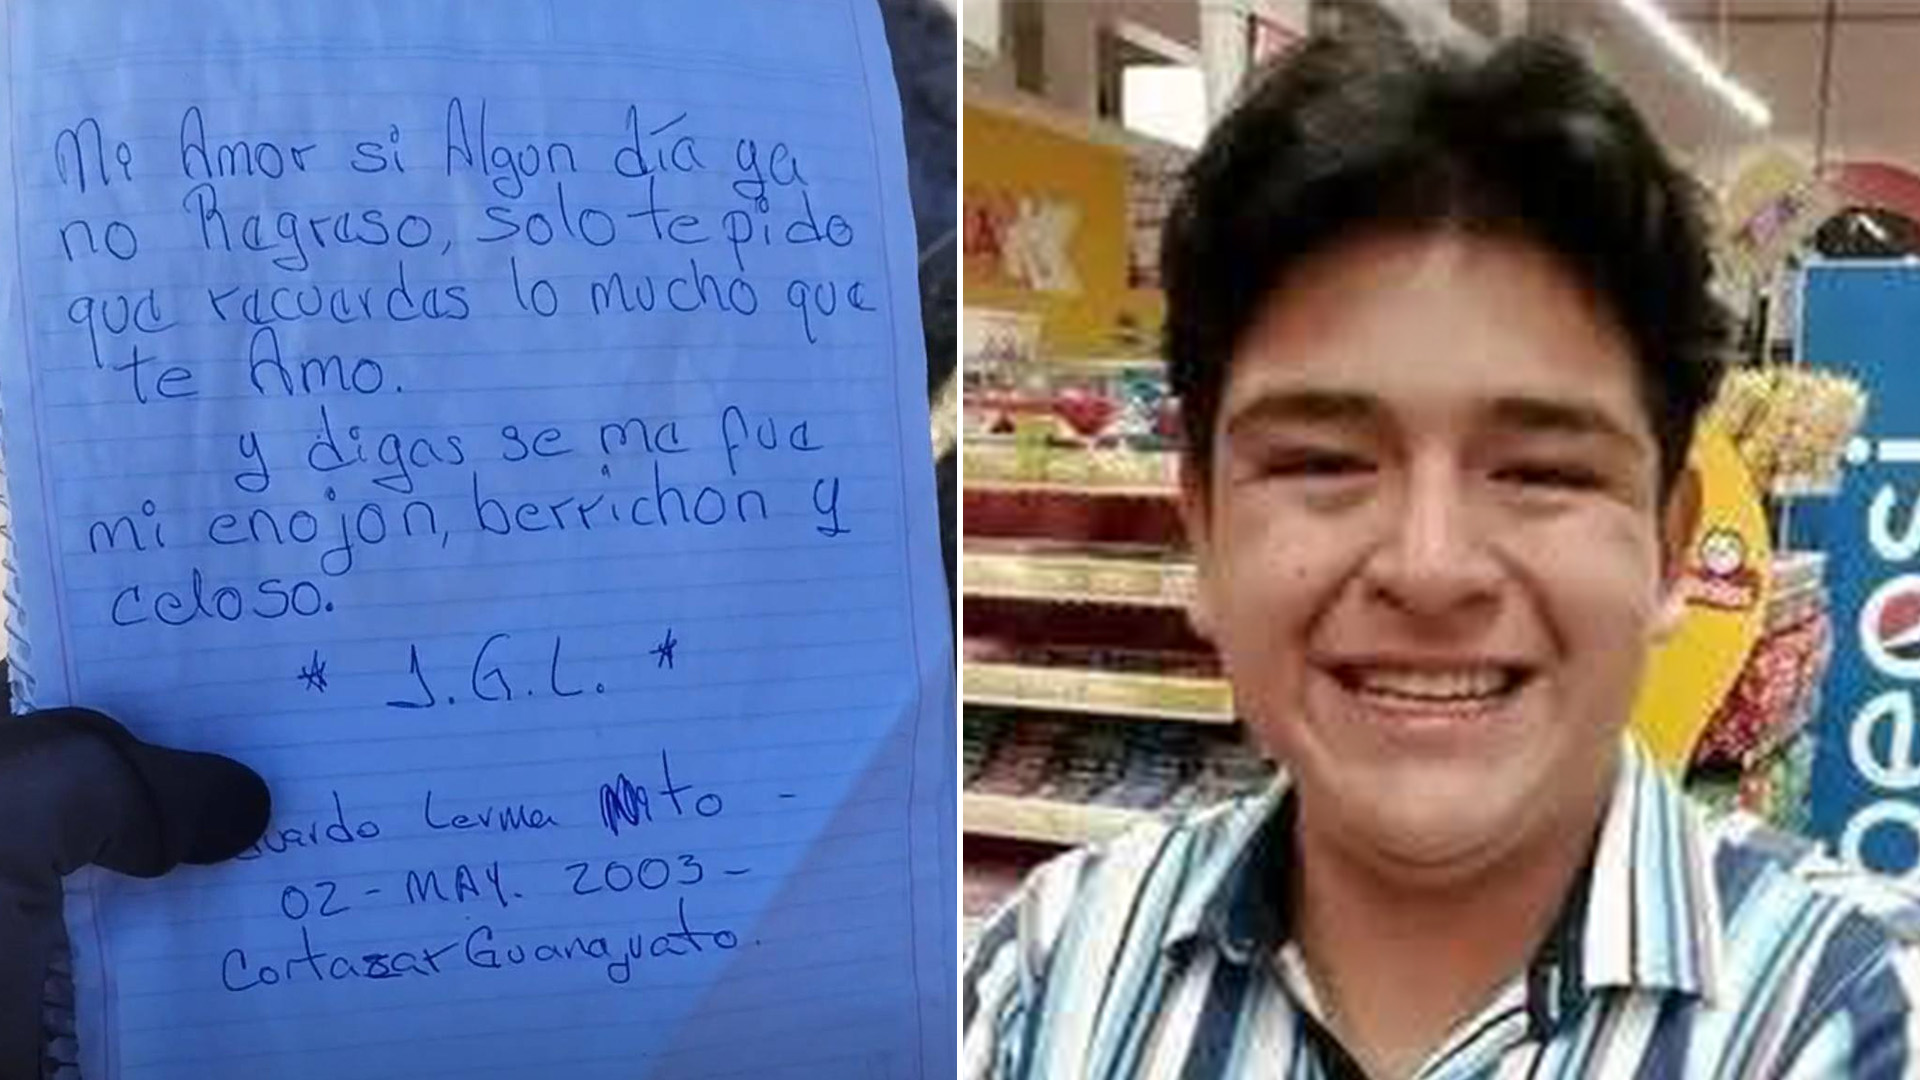 Mi Amor si Algun día ya
no Regreso, solo te pido
que recuerdes lo mucho que
te Amo.
y digas se me fue
mi enojon, berrichon y
celoso.
* J.G.L. *
uardo Lerma to -
02 - MAY. 2003 -
Cortazar Guanajuato.
pepsi